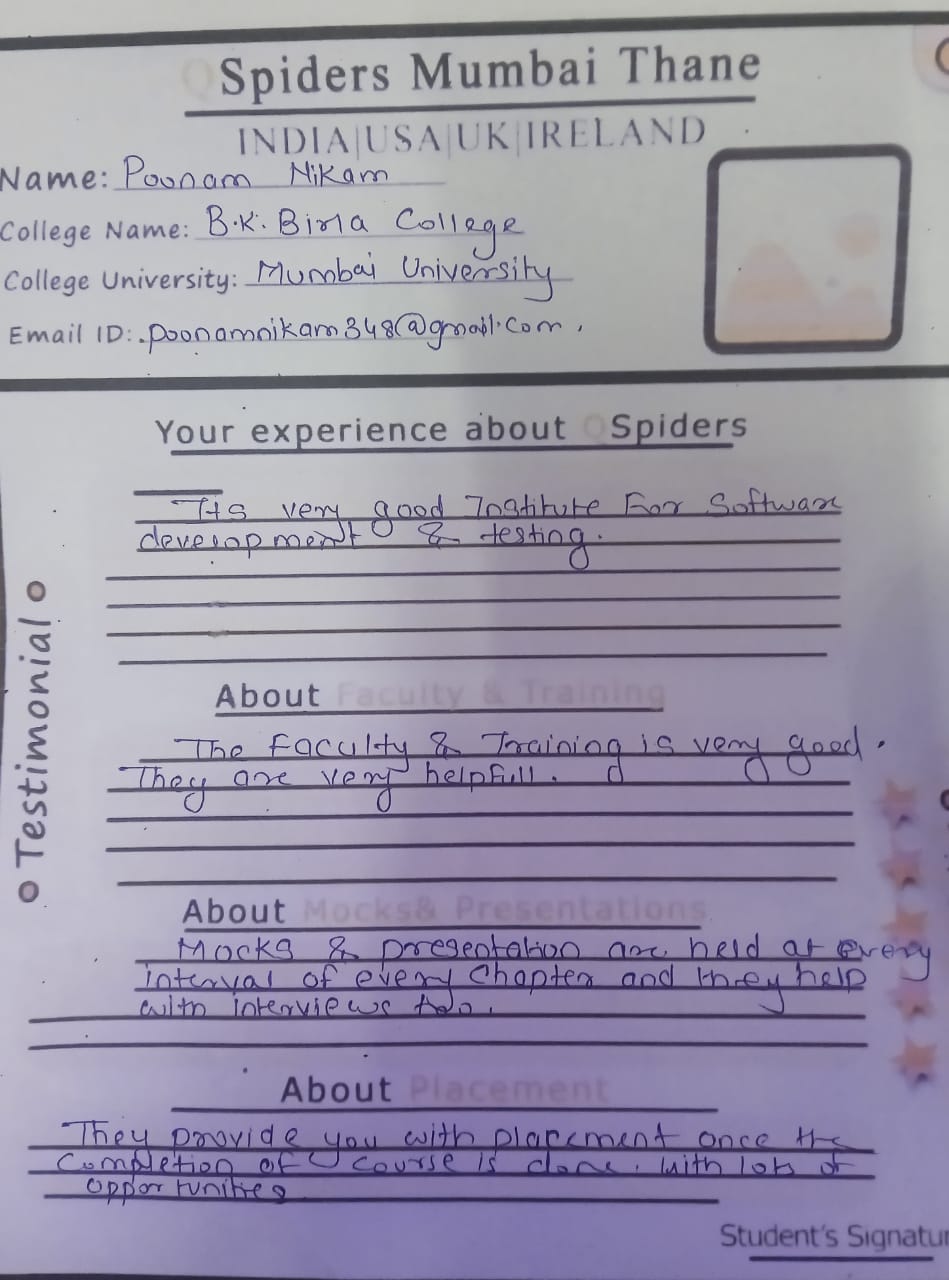 QSpiders Mumbai Thane
INDIA|USA|UK|IRELAND
Name: Poonam Nikam
College Name: B.K. Birla College
College University: Mumbai University
Email ID: poonamnikam348@gmail.com.
Your experience about QSpiders
Its very good Institute For Software
development & testing.
Testimonial
About Faculty & Training
The Faculty & Training is very good.
They are very helpfull.
About Mocks& Presentations
Mocks & presentation are held at every
interval of every Chapter and they help
with interviews too.
About Placement
They provide you with placement once the
Completion of course is done. with lots of
opportunities
Student's Signatur